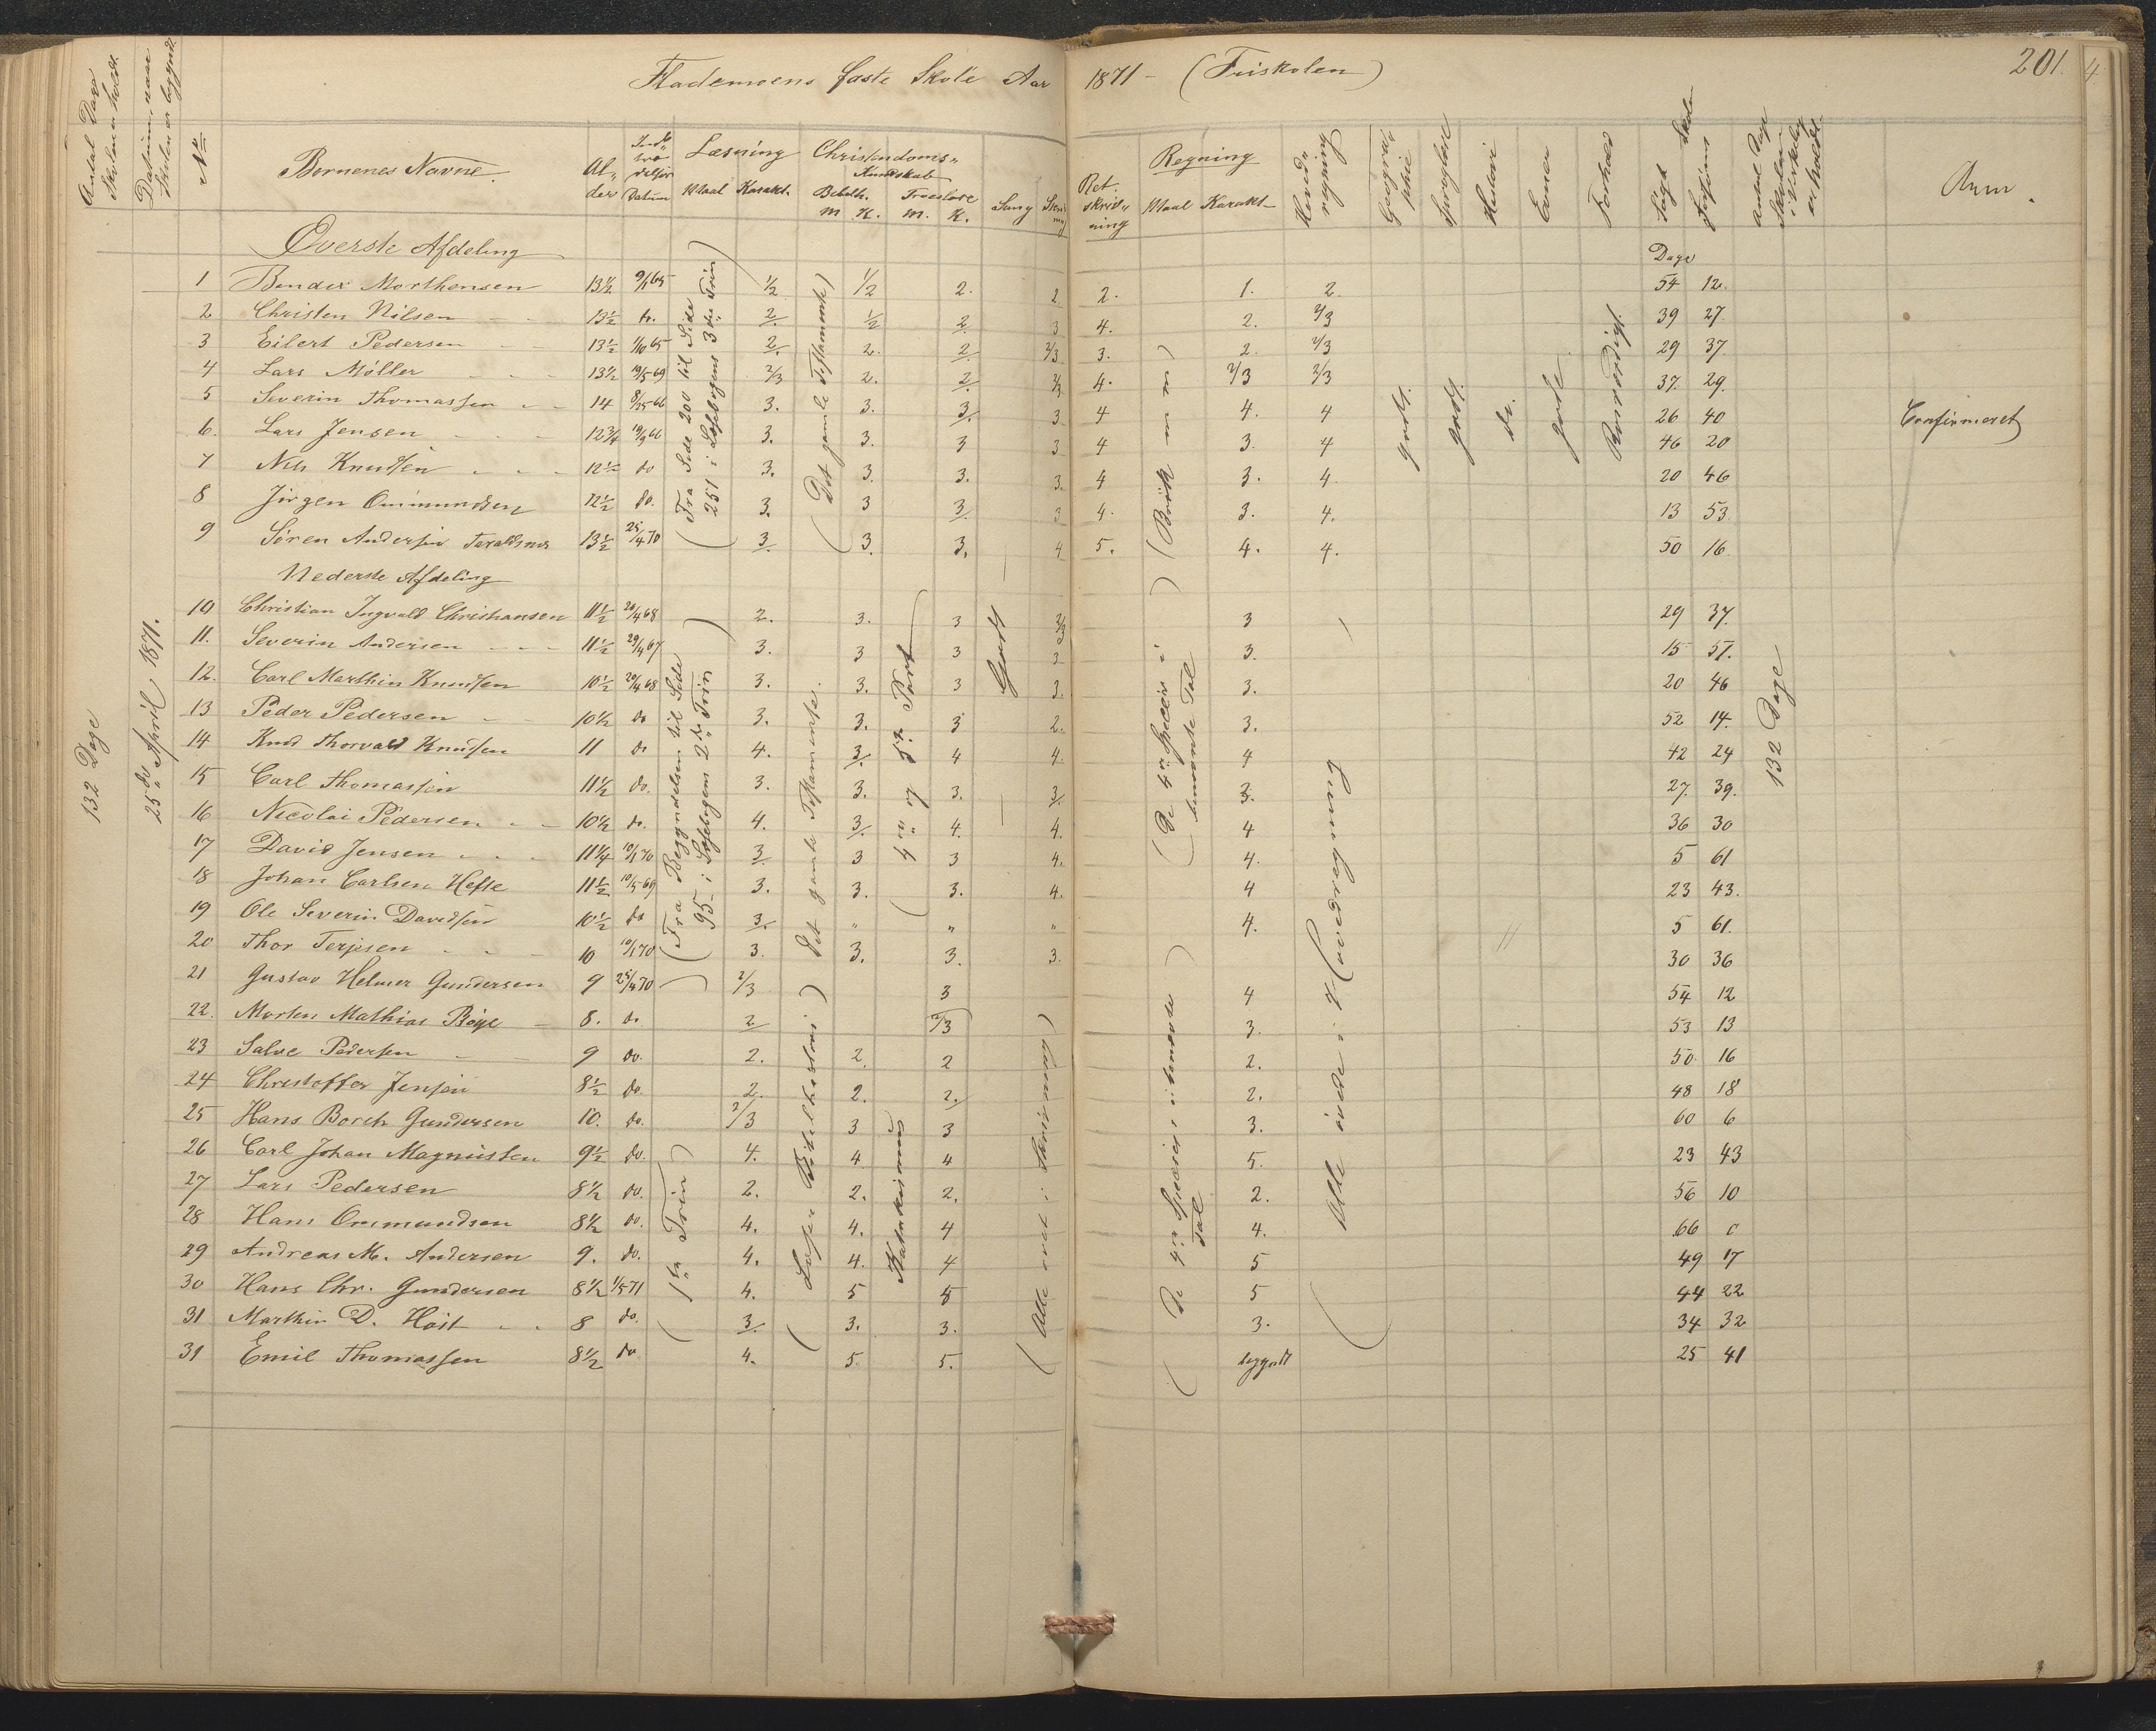 Flademoens faste Skole Aar 1871 - (Friskolen)
201.
Antal Dage Skolen er holdt.
Datum, naar Skolen er begyndt.
No
Børnenes Navne.
Alder
Datum
Læsning
Maal Karakt.
Christendoms-Kundskab
Bibelh.
M K.
Troeslære
M. K.
Sang
Skrivning
Retskrivning
Regning
Maal Karakt.
Hovedregning
Geographie
Historie
Evner
Forhold
Søgt Skolen
Forsømt
Antal Dage Skolen i Virkelig er holdt.
Anm.
132 Dage
25de April 1871.
Øverste Afdeling
Dage
1 Bendix Morthensen 13½ 9/1 65 ½ ½ 2. 2 2. 1. 2. 54 12.
2 Christen Nilsen 13½ do. 2. ½ 2 3 4. 2. 2/3 39 27
3 Eilert Pedersen 13½ 1/10 65 2. 2. 2. 2/3 3. 2. 2/3 29 37.
4 Lars Møller 13½ 19/5 69 2/3 2. 2. 2/3 4. 2/3 2/3 37. 29.
5 Severin Thomassen 14 8/25 66 3. 3. 3. 3 4 4. 4 26 40 Confirmeret
6. Lars Jensen 12¾ 19/9 66 3. 3. 3 3 4 3. 4 46 20
7 Nils Knudsen 12½ do 3. 3. 3. 3. 4 3. 4. 20 46
8 Jørgen Ommundsen 12½ do. 3. 3 3. 3 4. 3. 4. 13 53
9 Søren Andersen Taraldsnes 13½ 25/4 70 3. 3. 3. 4 5. 4. 4. 50 16
(Fra Side 200 til Side 251 i Læsebogens 3die Trin)
(Det gamle Testamente)
(Brøk
godt.
godt.
do.
gode
Nederste Afdeling
10 Christian Ingvald Christiansen 11½ 20/4 68 2. 3. 3 2/3 3 29 37.
11. Severin Andersen 11½ 29/4 67 3. 3 3 3 3. 15 51.
12. Carl Marthin Knudsen 10½ 20/4 68 3. 3. 3 3. 3. 20 46
13 Peder Pedersen 10½ do 3. 3. 3 2. 3. 52 14.
14 Knud Thorvald Knudsen 11 do 4. 3. 4 4. 4 42 24
15 Carl Thomassen 11½ do. 3. 3. 3. 3. 3. 27. 39.
16 Nicolai Pedersen 10½ do. 4. 3. 4. 4. 4 36 30
17 David Jensen 11¼ 10/1 70 3. 3 3 4. 4. 5 61
18 Johan Carlsen Hefte 11½ 10/5 69 3. 3. 3. 4. 4 23 43.
19 Ole Severin Davidsen 10½ do 3. " " " 4. 5 61.
20 Thor Terjesen 10 10/1 70 3. 3. 3. 3. 30 36
21 Gustav Helmer Gundersen 9 25/4 70 2/3 3 4 54 12
22. Morten Mathias Bøye 8. do. 2 2/3 3. 53 13
23 Salve Pedersen 9 do. 2. 2. 2 2. 50. 16
24 Christoffer Jensen 8½ do 2. 2. 2. 2. 48 18
25 Hans Borch Gundersen 10. do. 2/3 3 3 3. 60 6
26 Carl Johan Magnussen 9½ do. 4. 4 4 5. 23 43
27 Lars Pedersen 8½ do. 2. 2. 2. 2. 56 10
28 Hans Ommundsen 8½ do. 4. 4. 4 4. 66 0
29 Andreas M. Andersen 9. do. 4. 4. 4 5 49 17
30 Hans Chr. Gundersen 8½ 1/5 71 4. 5 5 5 44 22
31 Marthin D. Høst 8 do. 3. 3. 3. 3. 34 32
31 Emil Thomassen 8½ do 4. 5. 5. begyndt 25 41
(Fra Begyndelsen til Side 95 i Læsebogens 2det Trin)
(1ste Trin)
Det gamle Testamente.
(Læser Bibelhistorie)
(4de og 5te Part
Katekismus
Godt
(Alle øvet i Skrivning)
(De 4re Species i benævnte Tal)
(De 4re Species i ubenævnte Tal)
(Alle øvede i Hovedregning)
132 Dage